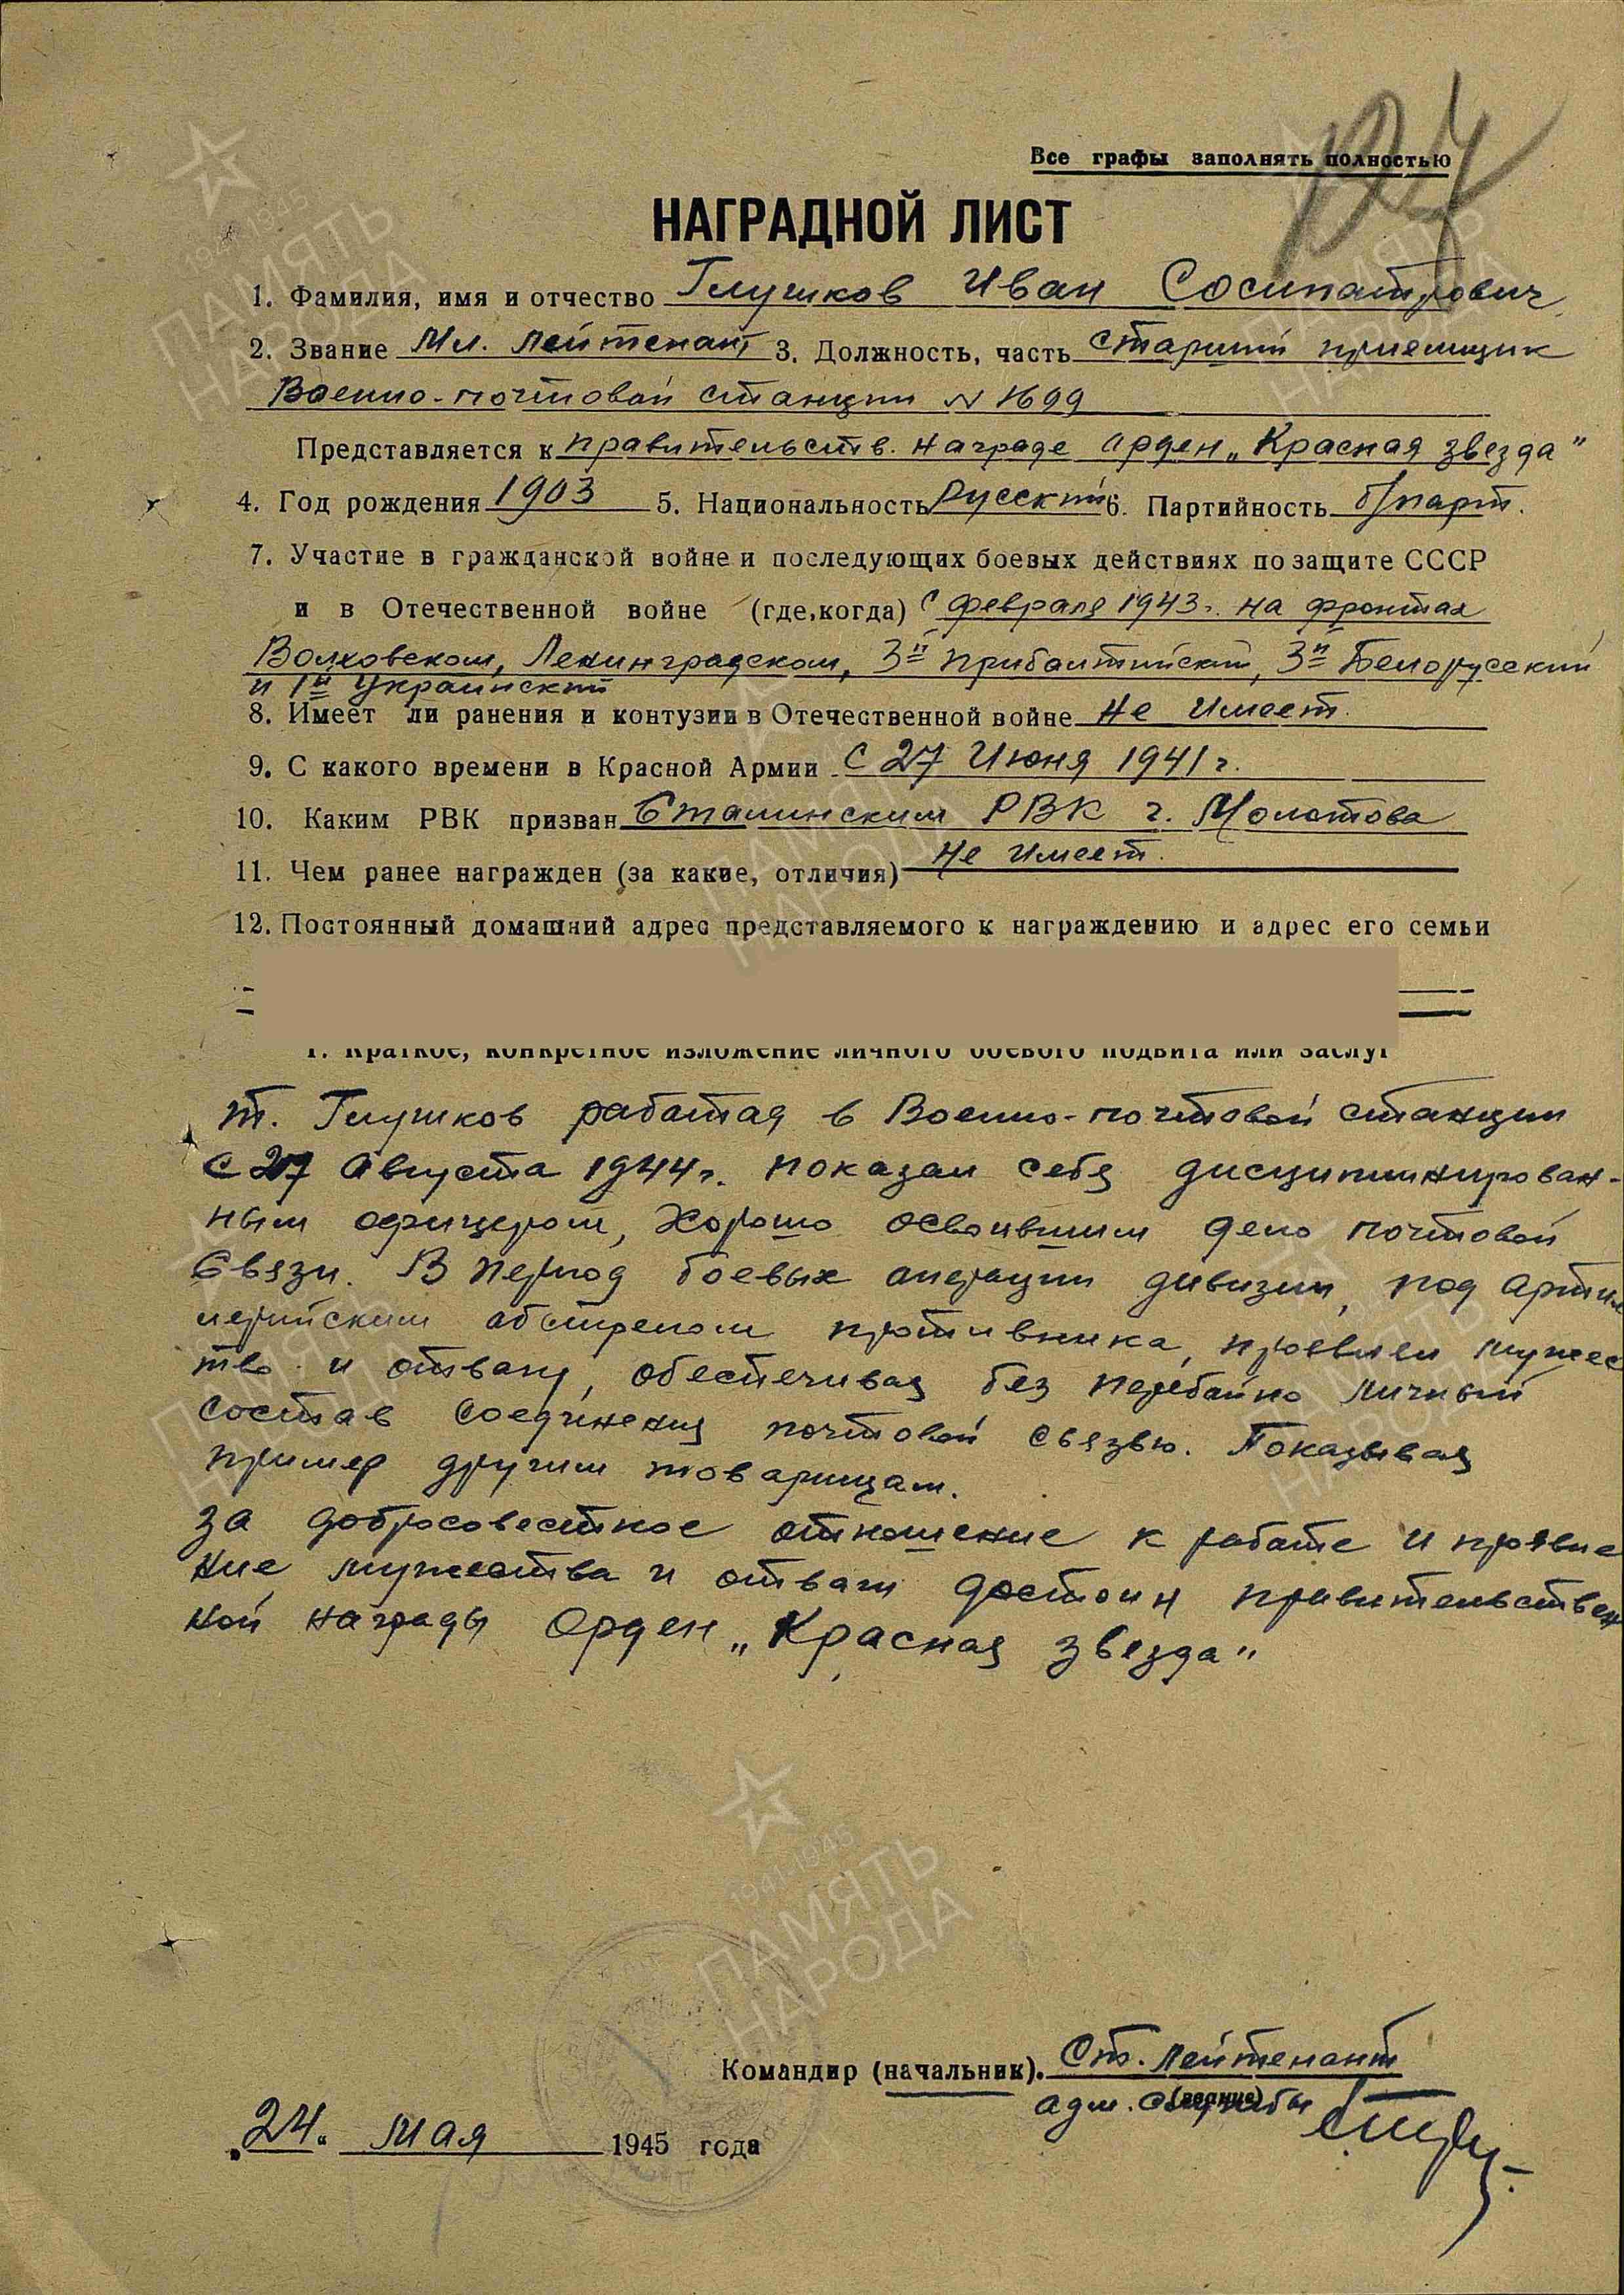 Все графы заполнять полностью
НАГРАДНОЙ ЛИСТ
1. Фамилия, имя и отчество Глушков Иван Сосипатрович
2. Звание Мл. лейтенант 3. Должность, часть старший приемщик
Военно-почтовой станции N 1699
Представляется к правительств. награде орден „Красная звезда"
4. Год рождения 1903 5. Национальность Русский 6. Партийность б/парт.
7. Участие в гражданской войне и последующих боевых действиях по защите СССР
и в Отечественной войне (где, когда) С февраля 1943 г. на фронтах
Волховском, Ленинградском, 3й Прибалтийский, 3й Белорусский
и 1й Украинский
8. Имеет ли ранения и контузии в Отечественной войне Не имеет.
9. С какого времени в Красной Армии С 27 Июня 1941 г.
10. Каким РВК призван Сталинским РВК г. Молотова
11. Чем ранее награжден (за какие, отличия) Не имеет.
12. Постоянный домашний адрес представляемого к награждению и адрес его семьи
1. Краткое, конкретное изложение личного боевого подвига или заслуг
т. Глушков работая в Военно-почтовой станции
с 27 Августа 1944 г. показал себя дисциплинирован-
ным офицером, хорошо освоившим дело почтовой
связи. В период боевых операции дивизии, под артил
лерийским обстрелом противника, проявлял мужес
тво и отвагу, обеспечивая без перебойно личный
состав соединения почтовой связью. Показывая
пример другим товарищам.
За добросовестное отношение к работе и проявле
ние мужества и отваги достоин правительствен
ной награды Орден „Красная звезда"
Командир (начальник). Ст. лейтенант
адм. службы
(звание)
„24" мая 1945 года
1941-1945
ПАМЯТЬ
НАРОДА